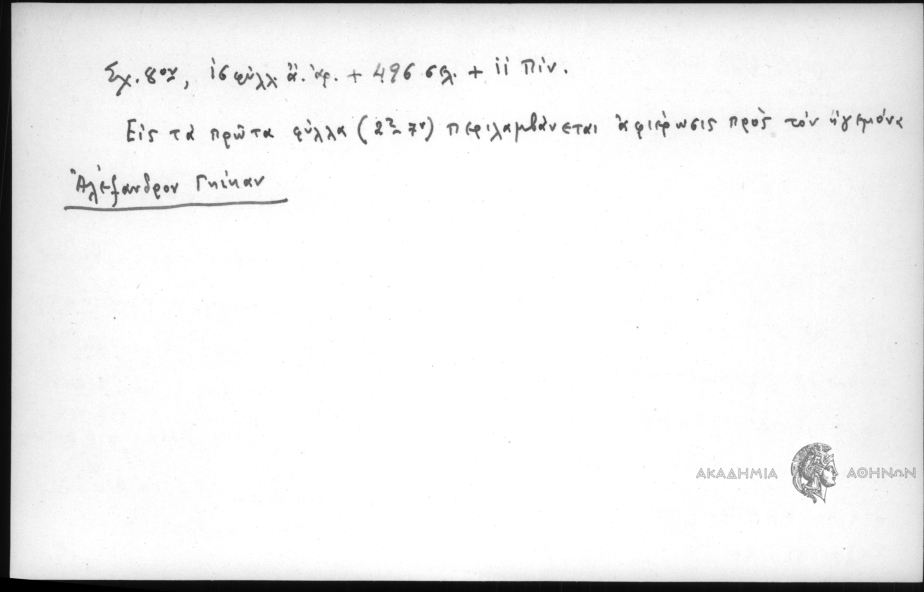 Σχ. 8ον, ις φύλλ. ἄ. ἀρ. + 496 σελ. + ιι Πίν.
Εἰς τὰ πρῶτα φύλλα (2r - 7v) περιλαμβάνεται ἀφιέρωσις πρὸς τὸν ἡγεμόνα
Ἀλέξανδρον Γκίκαν
ΑΚΑΔΗΜΙΑ ΑΘΗΝΩΝ